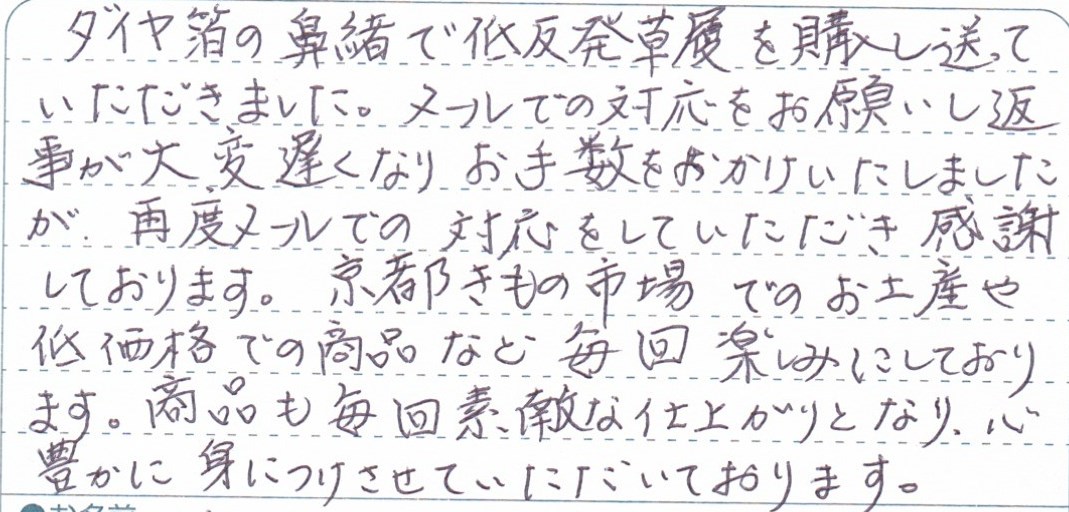 ダイヤ箔の鼻緒で低反発草履を購入し送って
いただきました。メールでの対応をお願いし返
事が大変遅くなりお手数をおかけいたしました
が、再度メールでの対応をしていただき感謝
しております。京都きもの市場でのお土産や
低価格での商品など毎回楽しみにしており
ます。商品も毎回素敵な仕上がりとなり、心
豊かに身につけさせていただいております。
●お名前